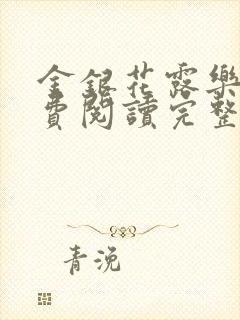 金銀花露樂
費閱讀完整
青浼